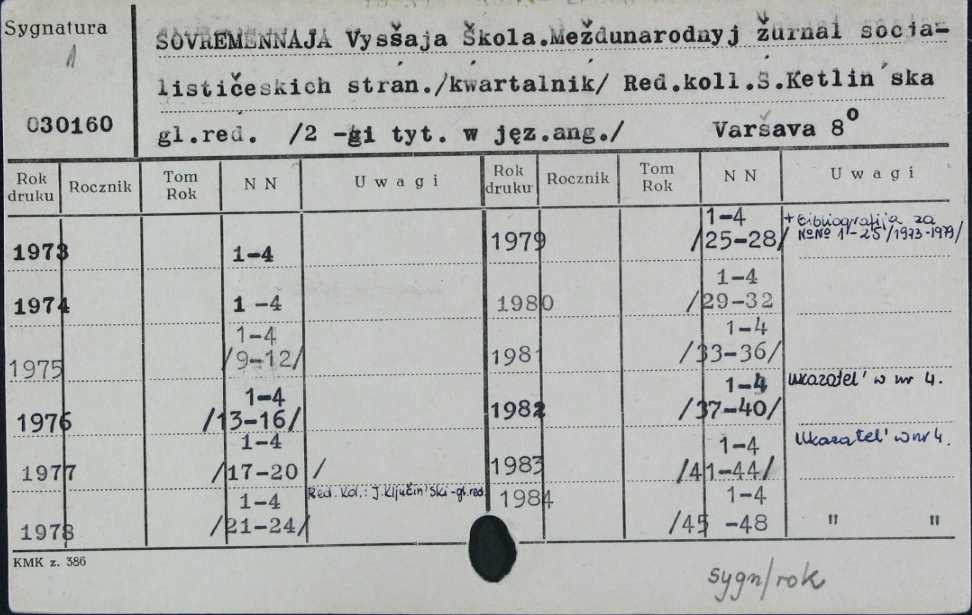 Sygnatura
1
030160
SOVREMENNAJA Vysšaja Škola.Meždunarodnyj žurnal socia-
lističeskich stran./kwartalnik/ Red.koll.S.Ketlin´ska
gl.red. /2 -gi tyt. w jęz.ang./ Varšava 8⁰
Rok druku Rocznik Tom Rok N N Uwagi Rok druku Rocznik Tom Rok N N Uwagi
1973 1-4 1979 1-4 /25-28/ + Bibliografija za NoNo 1-25/1973-1979/
1974 1 -4 1980 1-4 /29-32
1975 1-4 /9-12/ 1981 1-4 /33-36/
1976 1-4 /13-16/ 1982 1-4 /37-40/ Ukazatel' w nr 4.
1977 1-4 /17-20 / 1983 1-4 /41-44/ Ukazatel' w nr 4.
1978 1-4 /21-24/ Red. kol.: J.Ključin'ski-gl.red. 1984 1-4 /45 -48 " "
KMK z. 386
sygn/rok